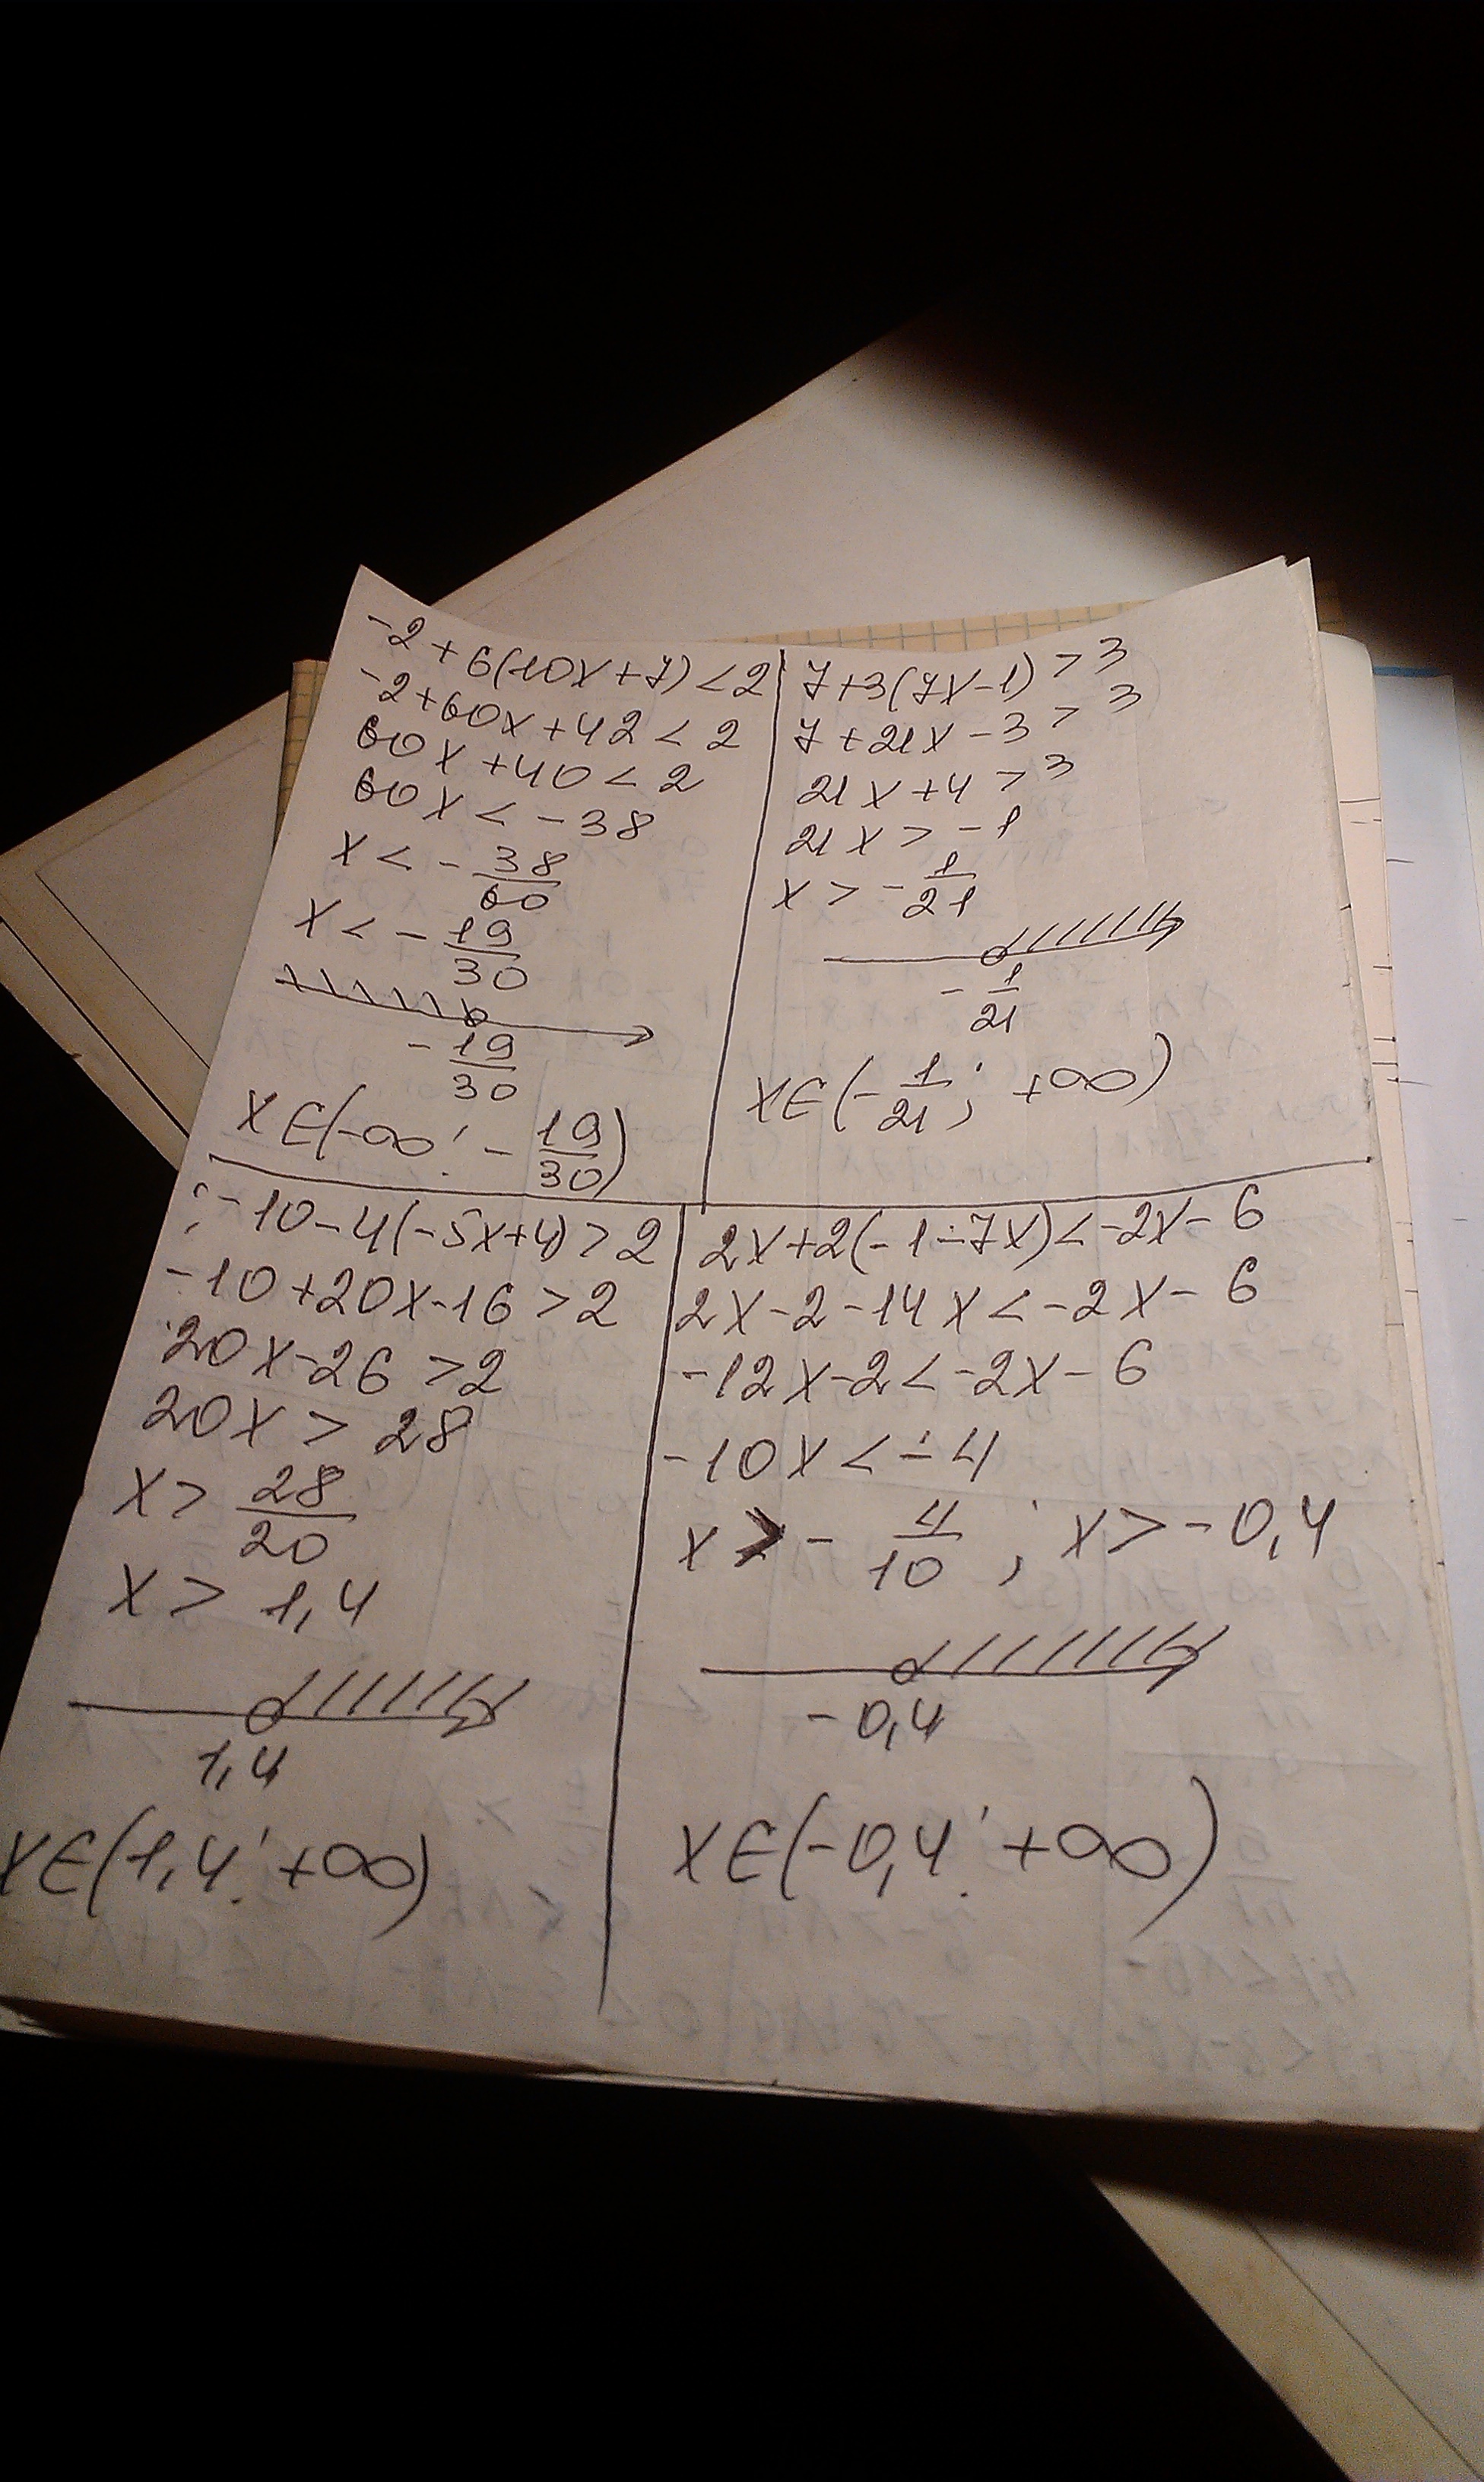 -2+6(10x+7)<2
-2+60x+42<2
60x+40<2
60x<-38
x<-38/60
x<-19/30
-19/30
x∈(-∞; -19/30)
7+3(7x-1)>3
7+21x-3>3
21x+4>3
21x>-1
x>-1/21
-1/21
x∈(-1/21; +∞)
-10-4(-5x+4)>2
-10+20x-16>2
20x-26>2
20x>28
x>28/20
x>1,4
1,4
x∈(1,4; +∞)
2x+2(-1-7x)<-2x-6
2x-2-14x<-2x-6
-12x-2<-2x-6
-10x<-4
x>-4/10; x>-0,4
-0,4
x∈(-0,4; +∞)